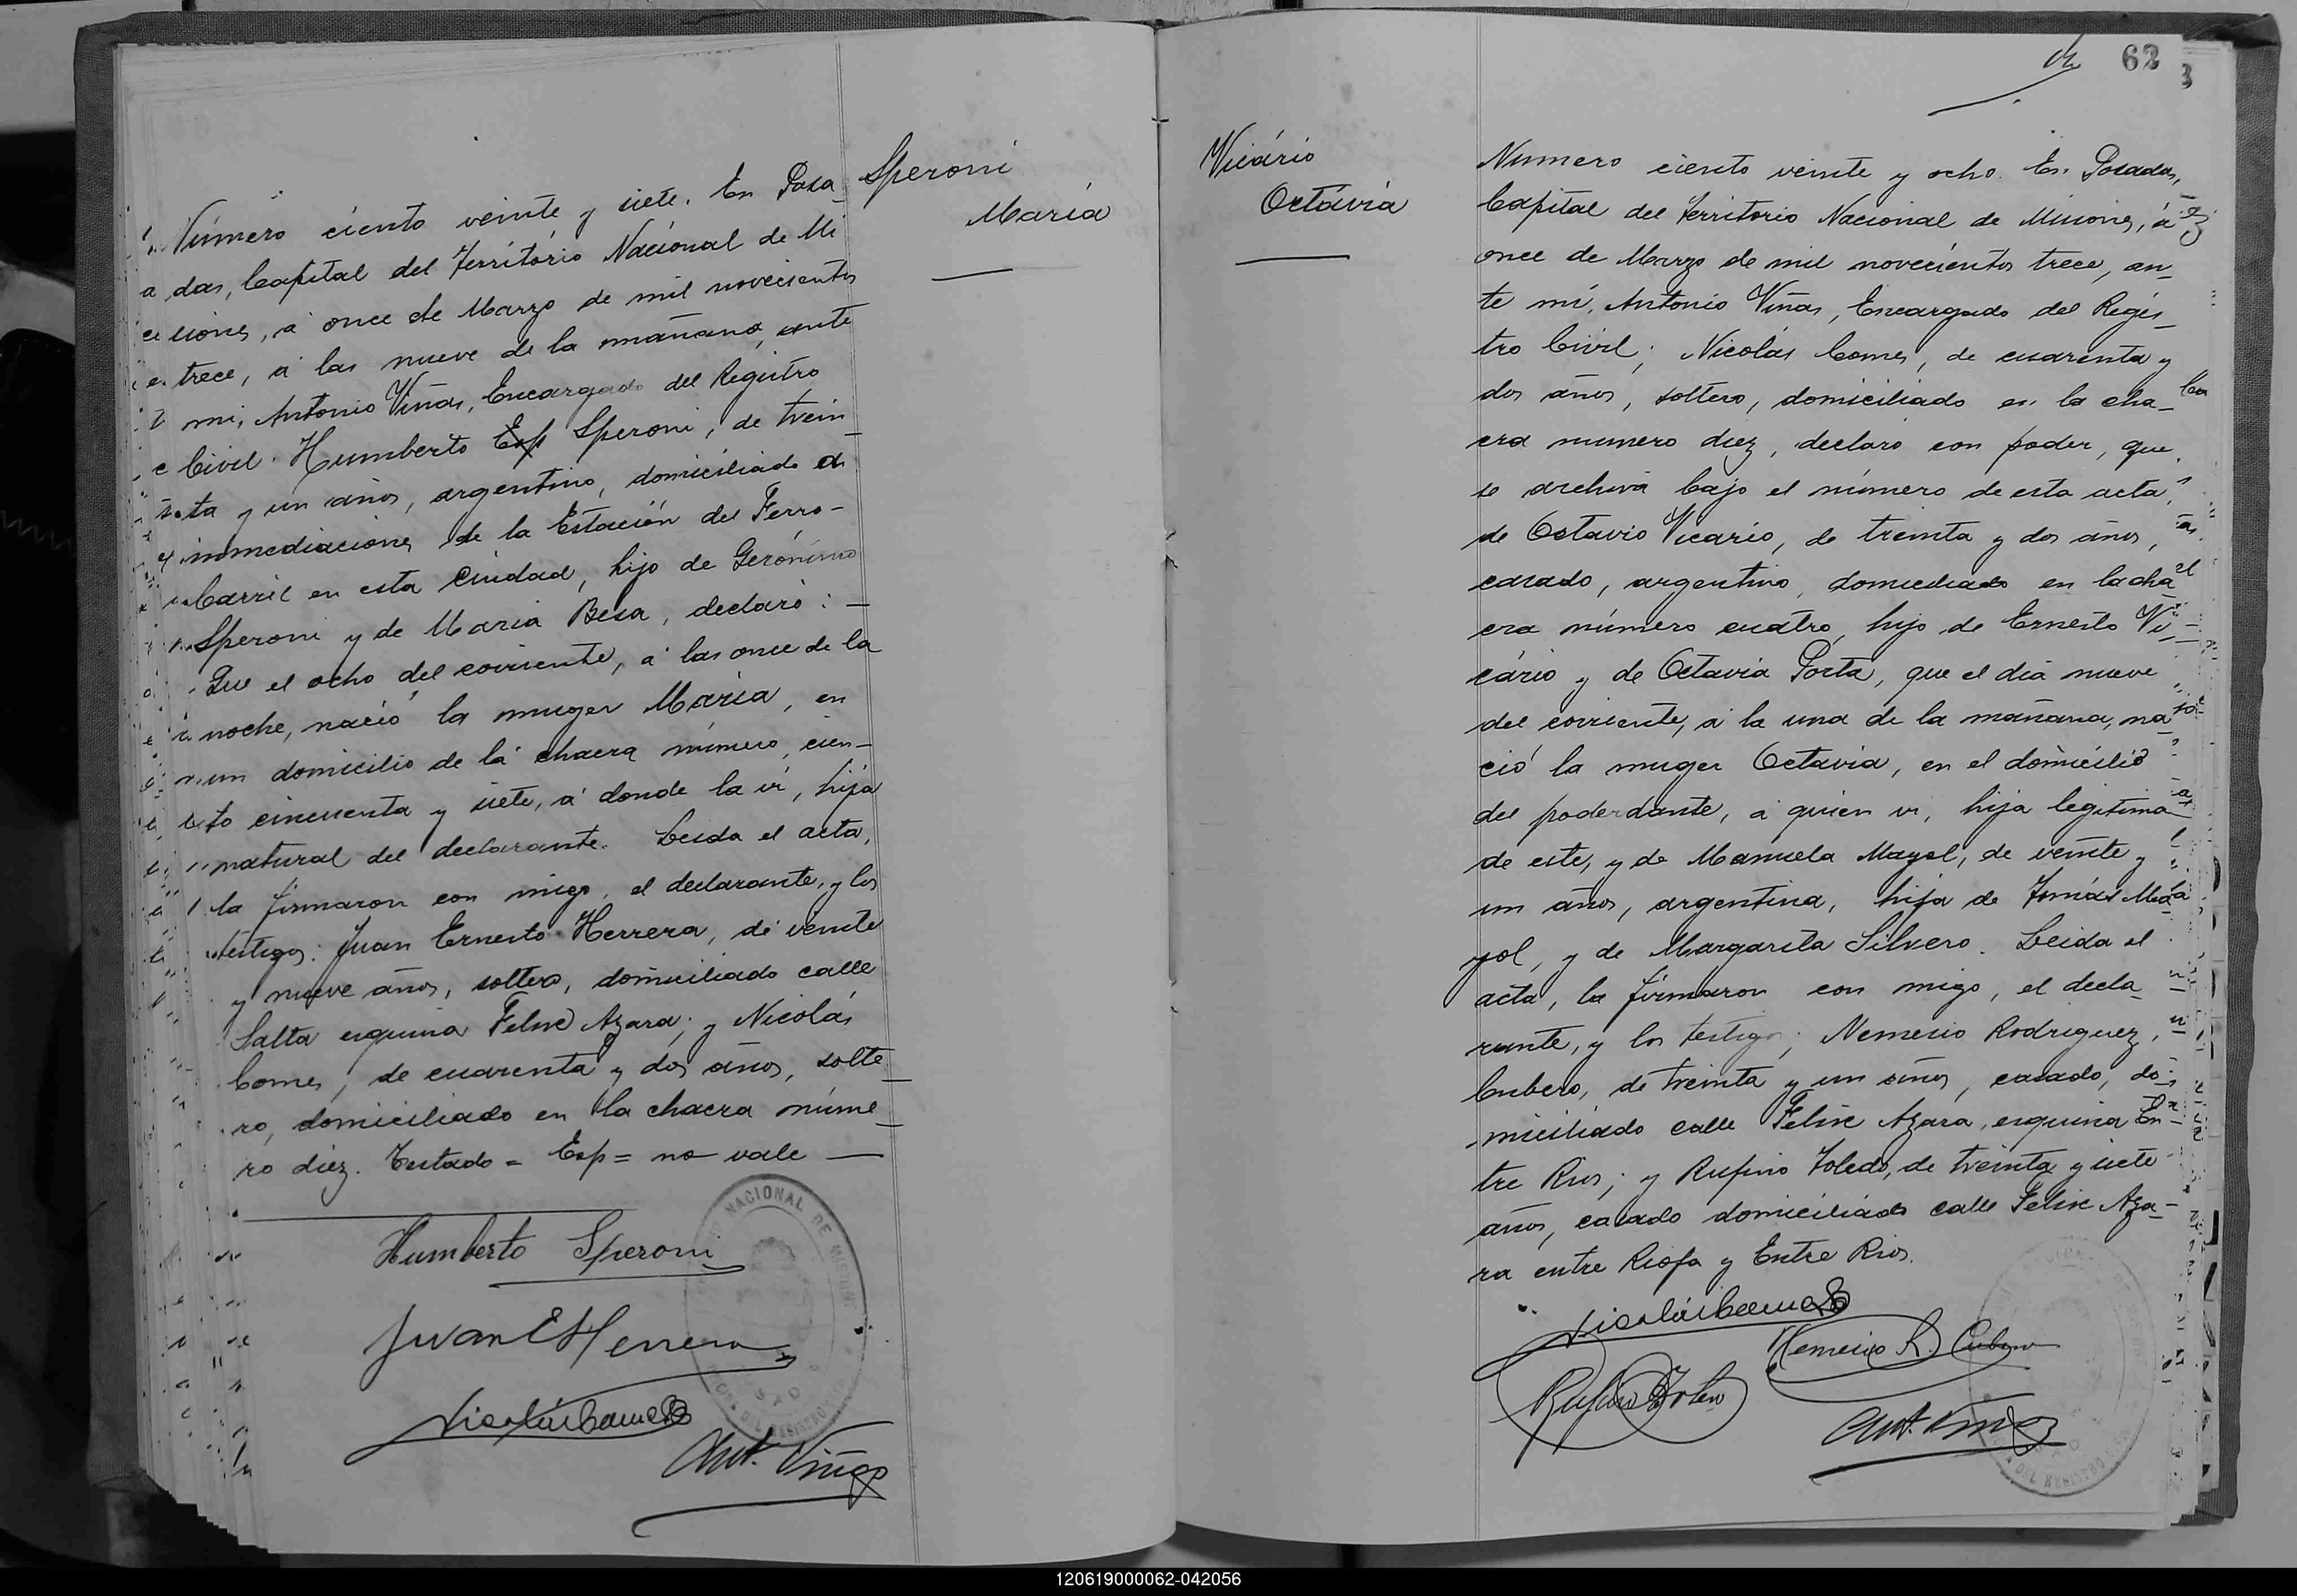 Speroni
María
Número ciento veinte y siete. En Posa_
das, Capital del Território Nacional de Mi
siones, á once de Marzo de mil novecientos
trece, á las nueve de la mañana, ante
mi, Antonio Viñas, Encargado del Registro
Civil. Humberto Esp Speroni, de trein_
ta y un años, argentino, domiciliado en
inmediaciones de la Estación del Ferro-
Carril en esta Ciudad, hijo de Gerónimo
Speroni y de Maria Besa, declaró: —
Que el ocho del corriente, á las once de la
noche, nació la muger María, en
un domicilio de la chacra número, cien_
to cincuenta y siete, á donde la ví, hija
natural del declarante. Leida el acta,
la firmaron con migo, el declarante, y los
testigos: Juan Ernesto Herrera, de veinte
y nueve años, soltero, domiciliado calle
Salta esquina Felix Azara; y Nicolás
Comes, de cuarenta y dos años, solte_
ro, domiciliado en la chacra núme_
ro diez. Testado = Esp = no vale —
Humberto Speroni
Juan E Herrera
Nicolás Comes
Ant. Viñas
62
Vicário
Octávia
Numero ciento veinte y ocho. En Posadas,
Capital del Territorio Nacional de Misiones, á
once de Marzo de mil novecientos trece, an_
te mí, Antonio Viñas, Encargado del Regis_
tro Civil; Nicolás Comes, de cuarenta y
dos años, soltero, domiciliado en la cha_
cra numero diez, declaro con poder, que
se archiva bajo el número de esta acta,
de Octavio Vicario, de treinta y dos años,
casado, argentino, domiciliado en la cha
cra número cuatro, hijo de Ernesto Vi_
cário y de Octavia Porta, que el día nueve
del corriente, á la una de la mañana, na_
ció la muger Octavia, en el domicilio
del poderdante, á quien ví, hija legitima
de este, y de Manuela Mayol, de veinte y
un años, argentina, hija de Tomás Ma_
yol, y de Margarita Silvero. Leida el
acta, la firmaron con migo, el decla_
rante, y los testigos; Nemesio Rodriguez,
Cubero, de treinta y un años, casado, do_
miciliado calle Felix Azara, esquina En_
tre Rios; y Rufino Toledo, de treinta y siete
años, casado domiciliado calle Felix Aza_
ra entre Rioja y Entre Rios.
Nicolás Comes
Nemesio R. Cubero
Rufino Toledo
Ant. Viñas
120619000062-042056